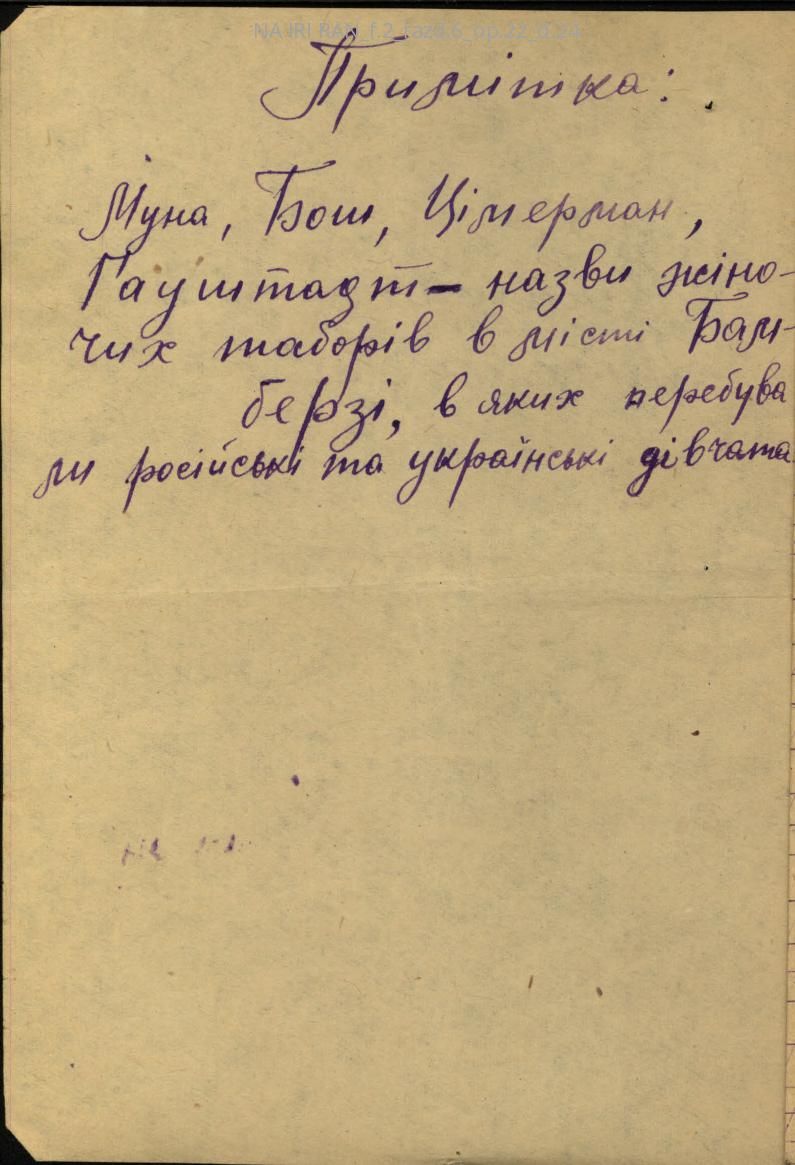 NA IRI RAN_f.2_razd.6_op.22_d.24
Примітка:
Муна, Бош, Цімерман,
Гауштадт – назви жіно-
чих таборів в місті Бам-
берзі, в яких перебува
ли російські та українські дівчата